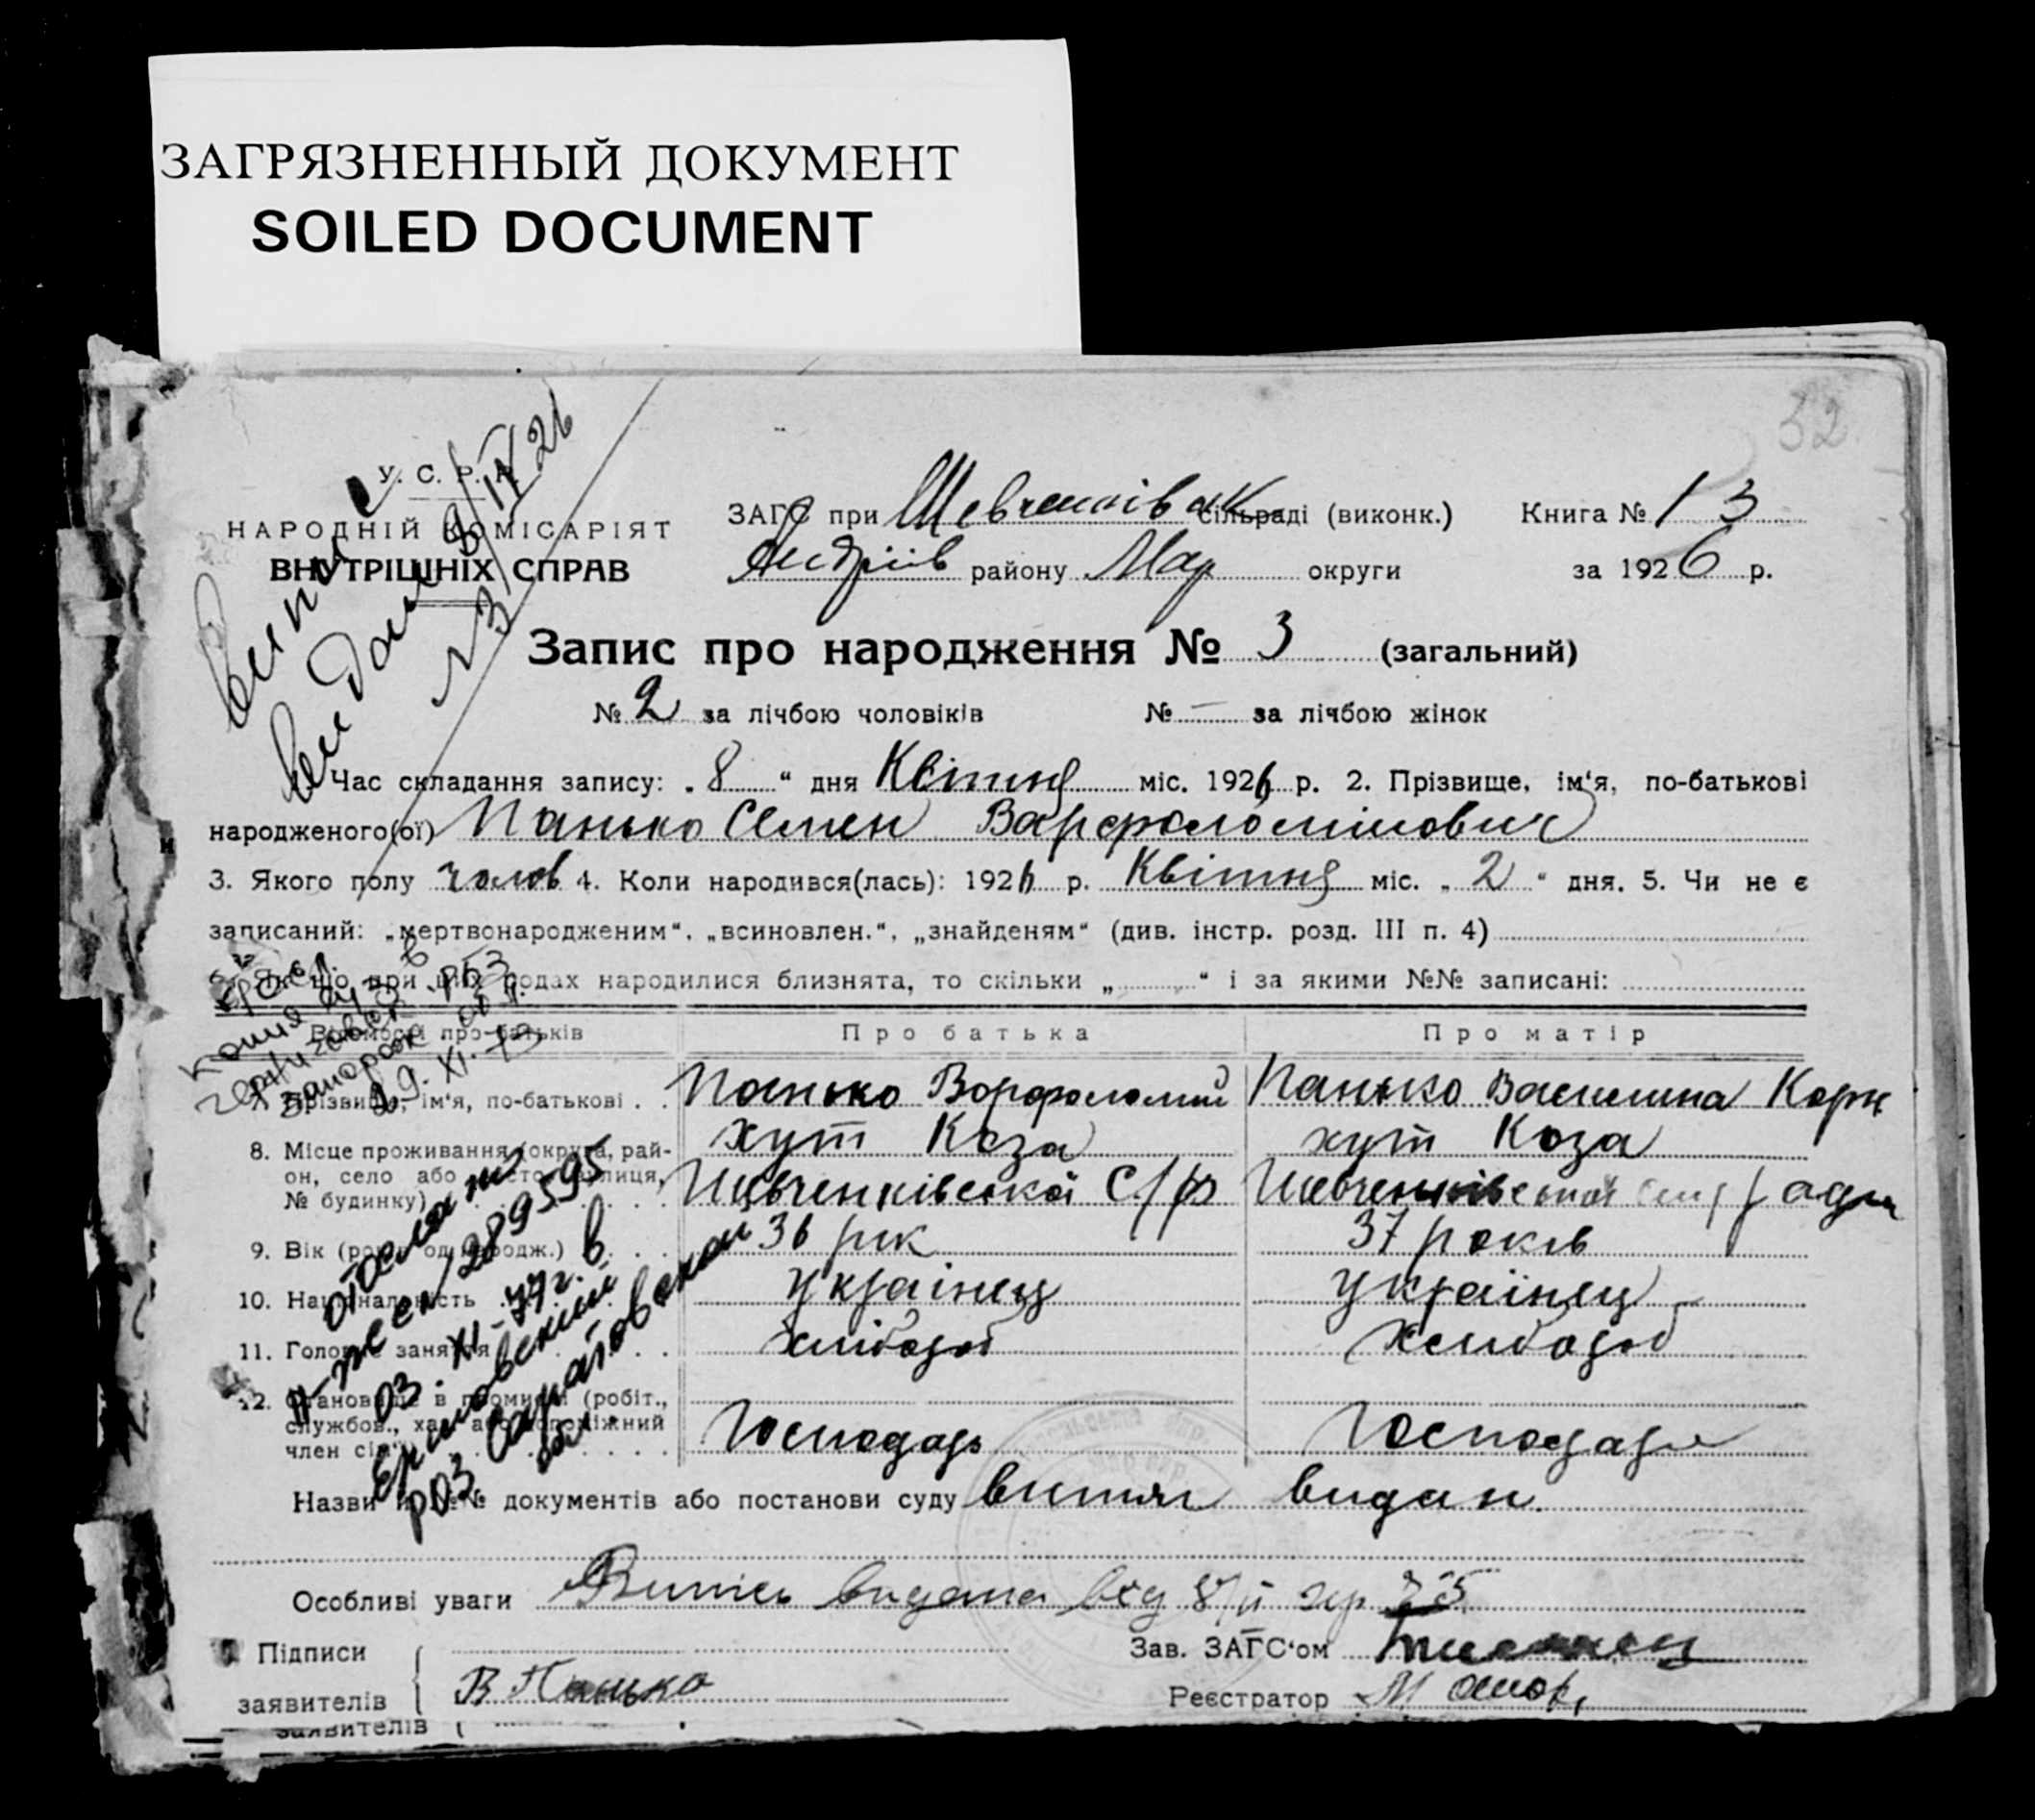 ЗАГРЯЗНЕННЫЙ ДОКУМЕНТ
SOILED DOCUMENT
52
У. С. Р. Р.
НАРОДНІЙ КОМІСАРІЯТ
ВНУТРІШНІХ СПРАВ
ЗАГС при Шевченківськ сільраді (виконк.) Книга № 13
Андріїв району Мар округи за 1926 р.
Запис про народження № 3 (загальний)
№ 2 за лічбою чоловіків № — за лічбою жінок
Час складання запису: „8“ дня Квітня міс. 1926 р. 2. Прізвище, ім'я, по-батькові
народженого(ої) Панько Семен Варфоломійович
3. Якого полу чолов 4. Коли народився(лась): 1926 р. Квітня міс. „2“ дня. 5. Чи не є
записаний: „мертвонародженим“, „всиновлен.“, „знайденям“ (див. інстр. розд. III п. 4)
6. Якщо при цих родах народилися близнята, то скільки „ “ і за якими №№ записані:
Відомості про батьків Про батька Про матір
7. Прізвище, ім'я, по-батькові Панько Ворфоломий Панько Василина Корн
8. Місце проживання (округа, рай-
он, село або місто, вулиця,
№ будинку) хут Коза Шевченківської С/р хут Коза Шевченківської
9. Вік (років од народж.) 36 рік 37 років
10. Національність українец українец
11. Головне заняття хлибороб хлибороб
12. Становище в промислі (робіт.,
службов., хаз. або допоміжний
член сім.) Господарь Господарь
Назви й №№ документів або постанови суду витяг видан.
Особливі уваги Витяг видана від
Підписи
заявителів В Панько
Зав. ЗАГС'ом
Реєстратор
заявителів
Випис
видана 8/IV 26
№ 3
29. XI. 73
289595
03. XI-74г. в
Саратовской
обл.